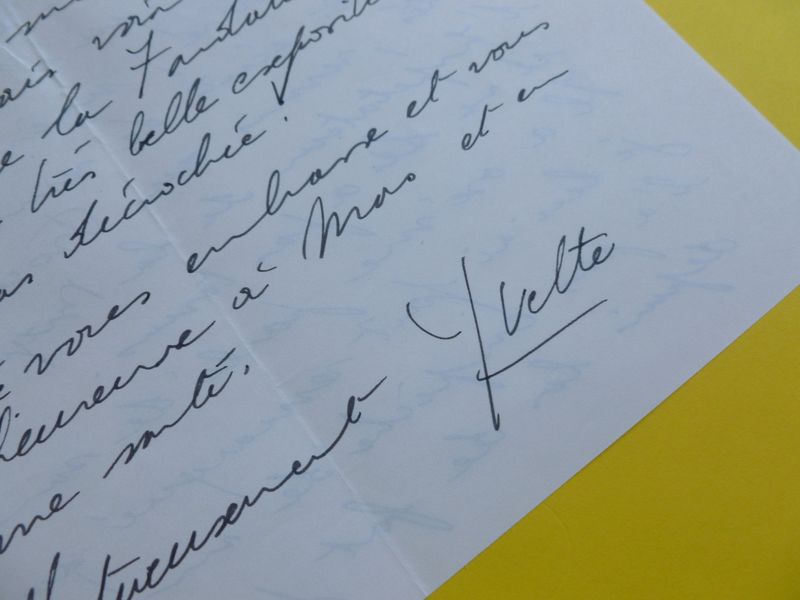 ais voir
la Fondat
très belle exposit
décrochée!
vous embrasse et vous
heureuse à Mas et en
ne santé.
tueusement
Yvette